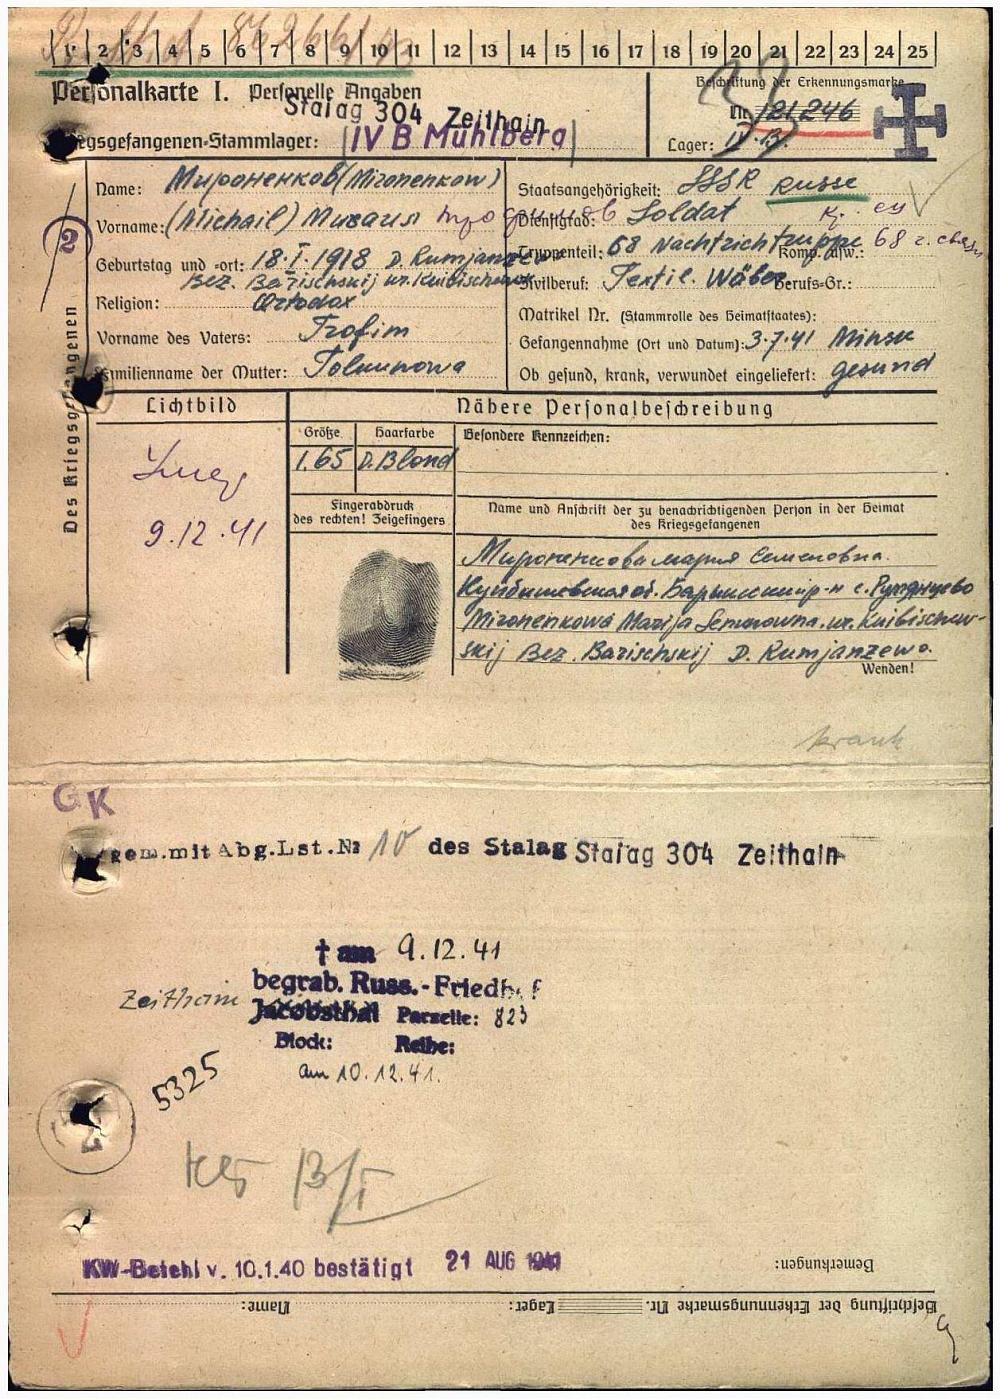 1 2 3 4 5 6 7 8 9 10 11 12 13 14 15 16 17 18 19 20 21 22 23 24 25
Personalkarte I. Personelle Angaben
Beschriftung der Erkennungsmarke
Stalag 304 Zeithain
Nr. 121246
Kriegsgefangenen-Stammlager: IV B Mühlberg
Lager: IV. B.
Des Kriegsgefangenen
2
Name: Мироненков (Mironenkow)
Vorname: (Michail) Михаил Трофимов
Geburtstag und -ort: 18.I.1918 D. Rumjanzewo
Bez. Barischskij ur. Kuibischewsk
Religion: Ortodox
Vorname des Vaters: Trofim
Familienname der Mutter:
Staatsangehörigkeit: SSSR Russe
Dienstgrad: Soldat
Truppenteil: 68 Nachrichttruppe Komp. usw.: 68
Zivilberuf: Textil. Wäber Berufs-Gr.:
Matrikel Nr. (Stammrolle des Heimatstaates):
Gefangennahme (Ort und Datum): 3.7.41 Minsk
Ob gesund, krank, verwundet eingeliefert: gesund
Lichtbild
Nähere Personalbeschreibung
Größe Haarfarbe Besondere Kennzeichen:
1.65 D. Blond
9.12.41
Fingerabdruck
des rechten! Zeigefingers
Name und Anschrift der zu benachrichtigenden Person in der Heimat
des Kriegsgefangenen
Мироненкова Мария Семеновна.
Куйбишевская об. Барышский р-н с. Румянцево
Mironenkowa Marija Semenowna. ur. Kuibischew-
skij Bez. Barischskij D. Rumjanzewo.
Wenden!
krank
GK
gem. mit Abg. Lst. № 10 des Stalag Stalag 304 Zeithain
† am 9.12.41
begrab. Russ.-Friedhof
Zeithain Jacobsthal Parzelle: 823
Block: Reihe:
am 10.12.41.
5325
KW-Befehl v. 10.1.40 bestätigt 21 AUG 1941
Bemerkungen:
Beschriftung der Erkennungsmarke Nr. Lager: Name: